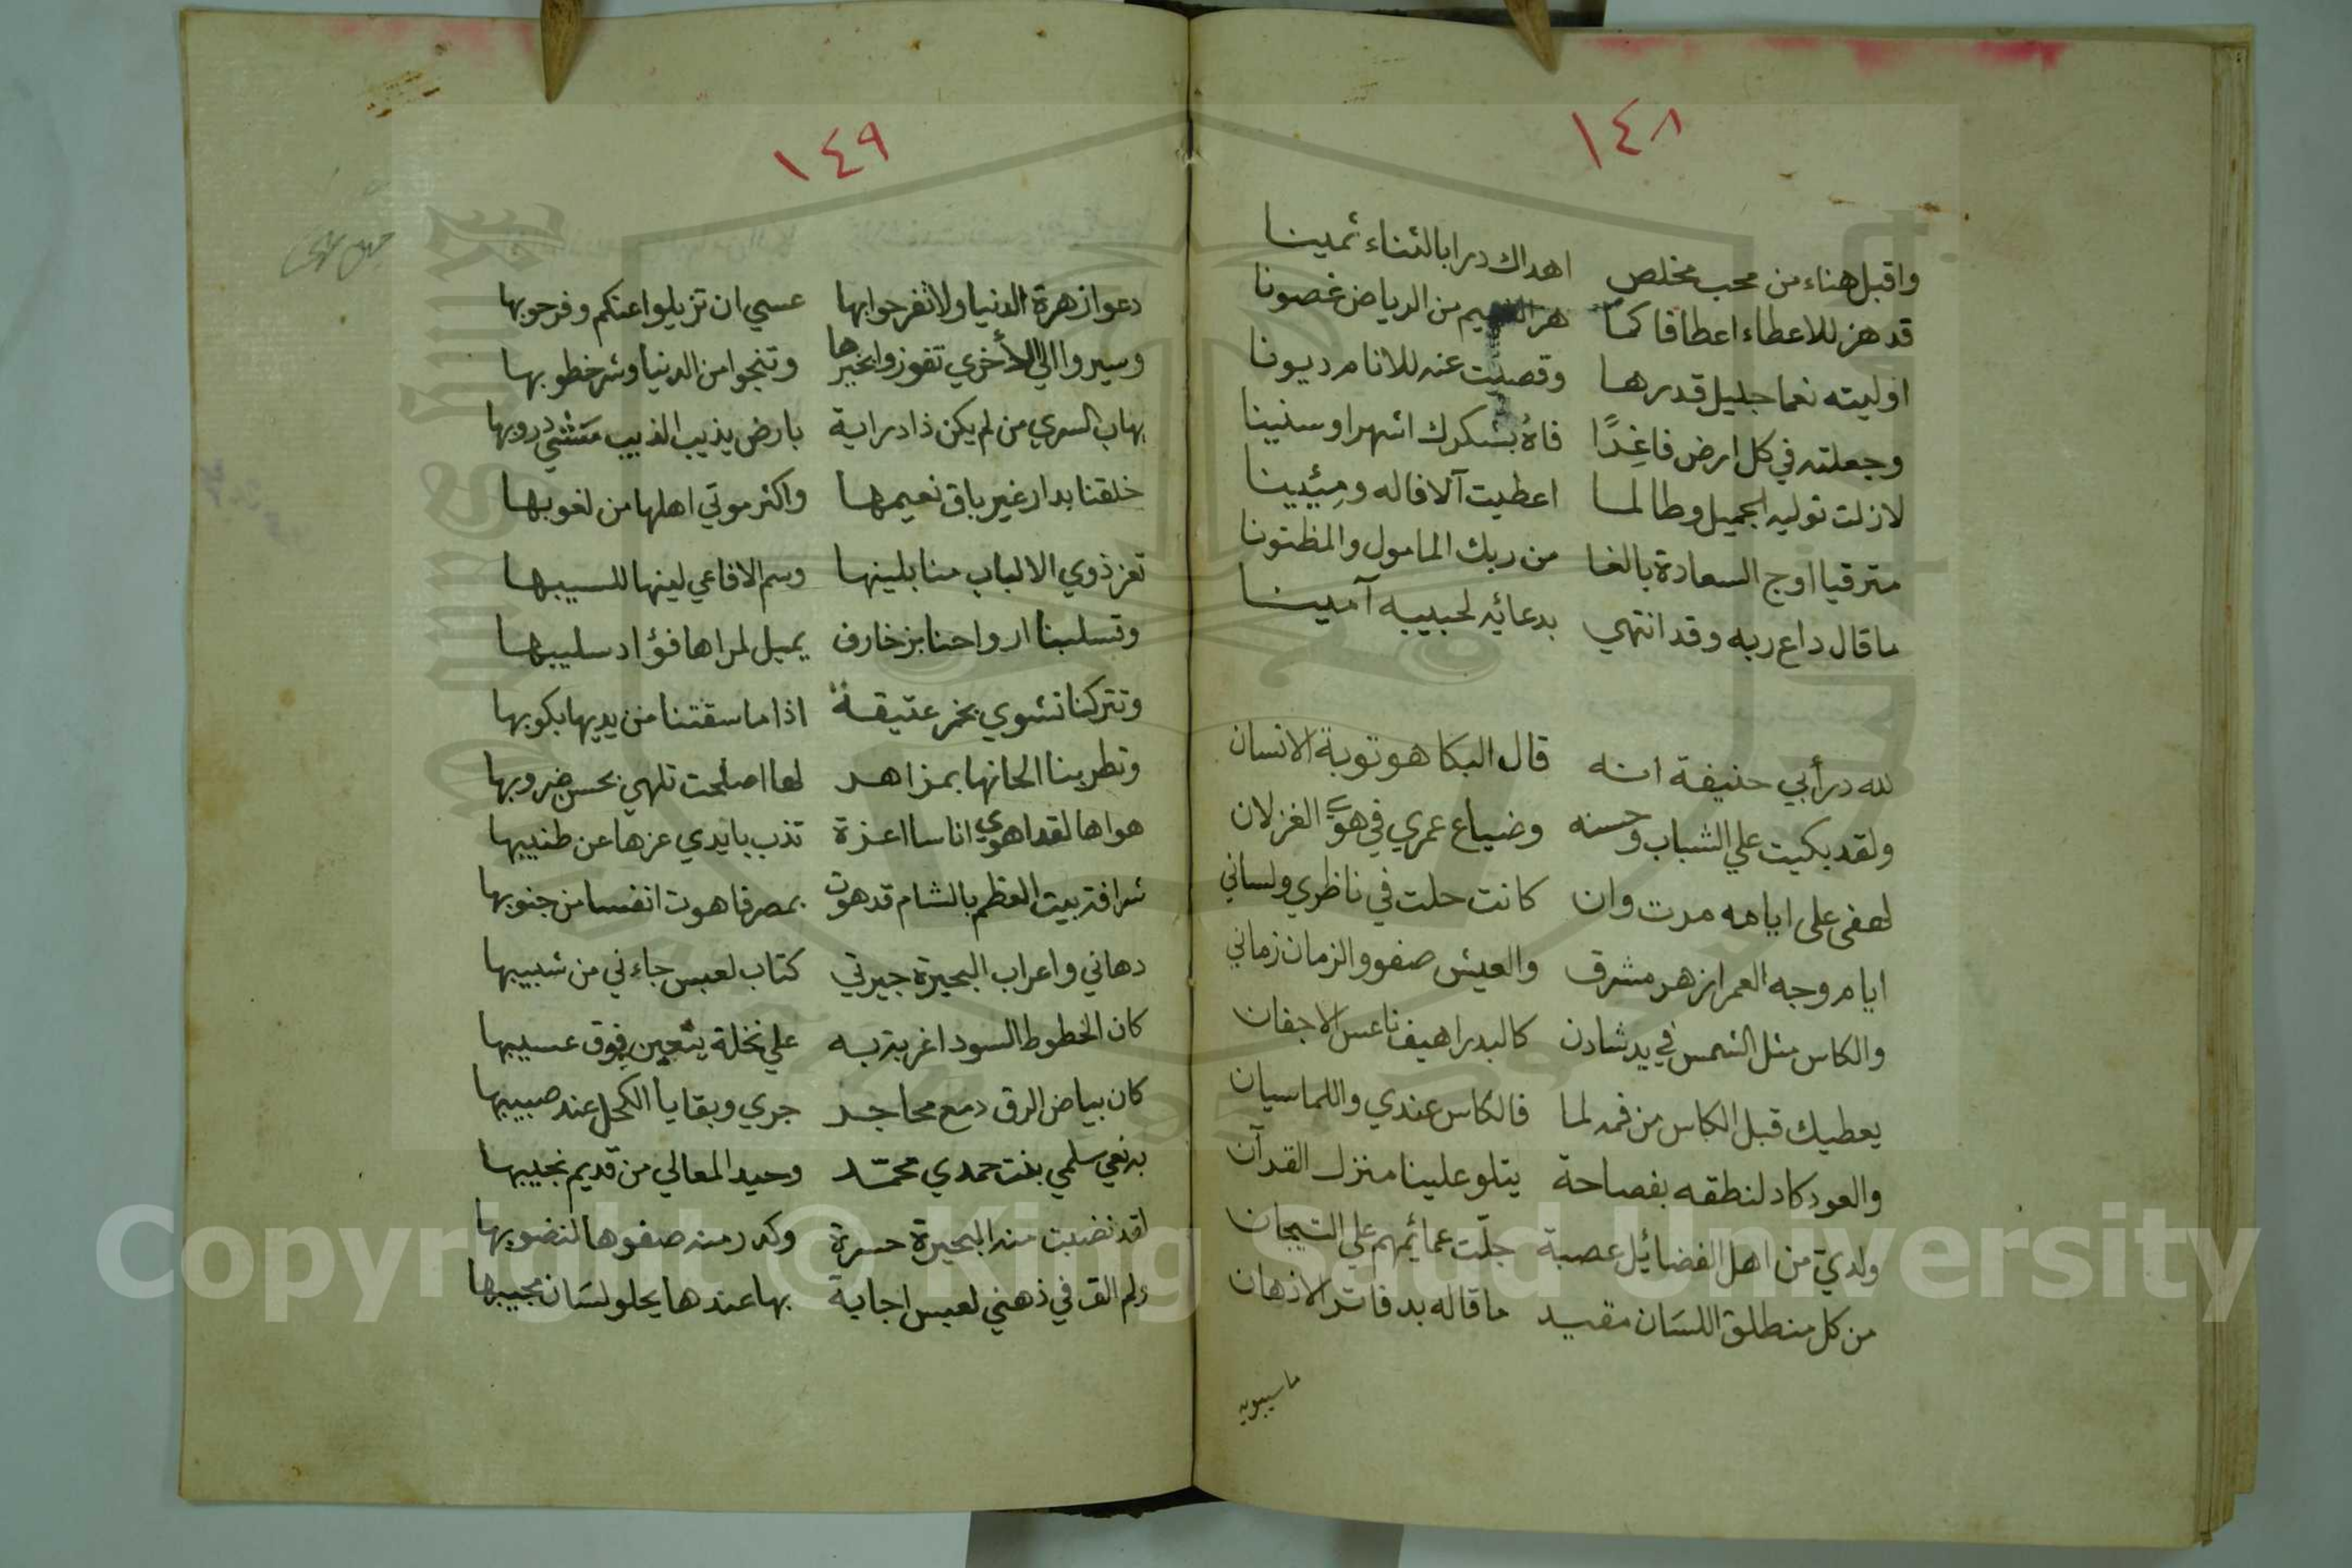 ١٤٨
واقبل هناء من محب مخلص اهداك درا بالثناء ثمينا
قد هز للاعطاء اعطافا كما هز من الرياض غصونا
اوليته نعما جليل قدرها وقضيت عنه للانام ديونا
وجعلته في كل ارض فاغِدًا فاهُ بشكرك اشهرا وسنينا
لازلت توليه الجميل وطالما اعطيت آلافا له ومِئِينا
مترقيا اوج السعادة بالغا من ربك المامول والمظنونا
ما قال داع ربه وقد انتهي بدعائه لحبيبه آمينا
لله در أبي حنيفة انه قال البكا هو توبة الانسان
ولقد بكيت علي الشباب وحسنه وضياع عمري في هوي الغزلان
لهفى على ايامه مرت وان كانت حلت في ناظري ولساني
ايام وجه العمر ازهر مشرق والعيش صفو والزمان زماني
والكاس مثل الشمس في يد شادن كالبدر اهيف ناعس الاجفان
يعطيك قبل الكاس من فمه لما فالكاس عندي واللما سيان
والعود كاد لنطقه بفصاحة يتلو علينا منزل القرآن
ولدي من اهل الفضائل عصبة جلّت عمائمهم علي التيجان
من كل منطلق اللسان مقيد ما قاله بدفاتر الاذهان
ما سيبويه
١٤٩
دعوا زهرة الدنيا ولا تفرحوا بها عسي ان تزيلوا عنكم وفرحوبها
وسيروا الي الأخري تفوزوا بخيرها وتنجوا من الدنيا وشر خطوبها
يهاب السري من لم يكن ذا دراية بارض يذيب الذيب مشي دروبها
خلقنا بدار غير باق نعيمها واكثر موتي اهلها من لغوبها
تغر ذوي الالباب منا بلينها وسم الافاعي لينها للسيبها
وتسلبنا ارواحنا بزخارف يميل لمراها فؤاد سليبها
وتتركنا نشوي بخمر عتيقة اذا ما سقتنا من يديها بكوبها
وتطربنا الحانها بمزاهر لها اصلحت تلهي بحسن ضروبها
هواها لقد اهوي اناسا اعزة تذب بايدي عزها عن طنيبها
شرافة بيت العظم بالشام قد هوت بمصر فاهوت انفسا من جنوبها
دهاني واعراب البحيرة جيرتي كتاب لعبس جاءني من شبيبها
كان الخطوط السود اغربة به علي نخلة ينعين فوق عسيبها
كان بياض الرق دمع محاجر جري وبقايا الكحل عند صبيبها
به نعي سلمي بنت حمدي محمّد وحيد المعالي من قديم نجيبها
لقد نضبت منه البحيرة حسرة وكدر منه صفوها لنضوبها
ولم الق في ذهني لعبس اجابة بها عندها يحلو لسَان مجيبها